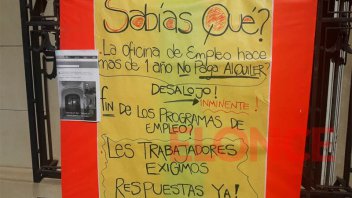 Sabías Qué?
.La oficina de Empleo hace
mas de 1 año No Paga ALQUILER?
DESALOJO!
INMINENTE!
fin DE LOS PROGRAMAS DE
EMPLEO?
LES TRABAJADORES
EXIGIMOS
RESPUESTAS YA!
ELONCE